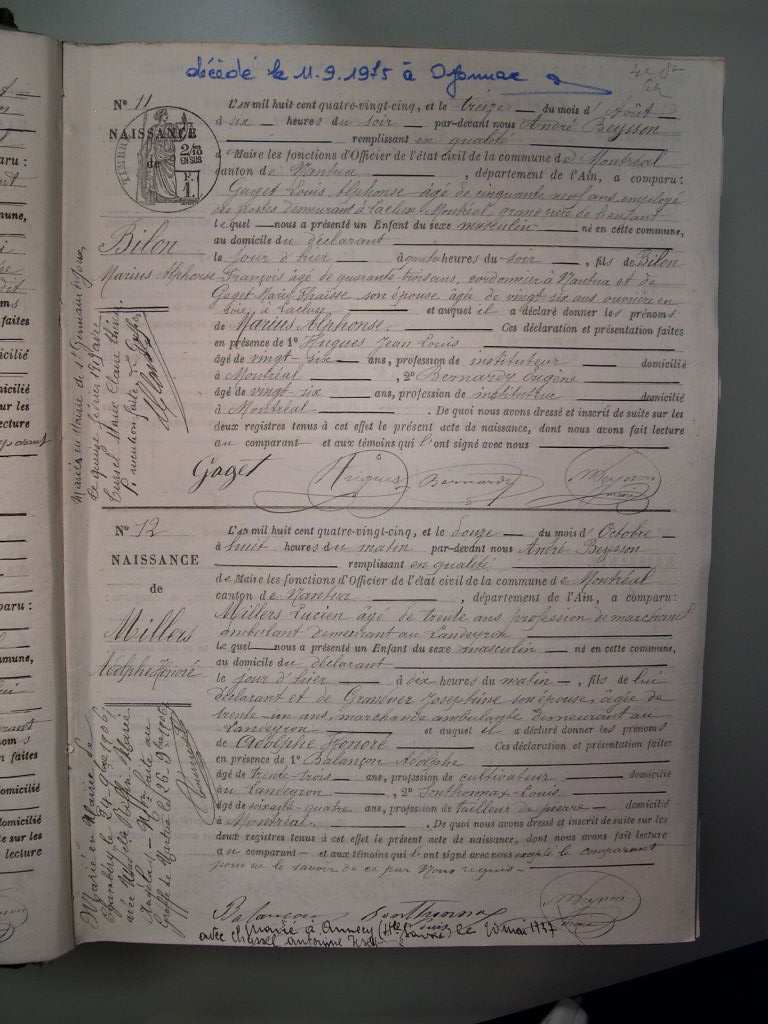 décédé le 11.9.1975 à Oyonnax
N° 11
NAISSANCE
de
Bilon
L'AN mil huit cent quatre-vingt-cinq, et le treize du mois d'Août
à six heures du soir par-devant nous André Beysson
remplissant en qualité
de Maire les fonctions d'Officier de l'état civil de la commune de Montréal
canton de Nantua, département de l'Ain, a comparu:
Gaget Louis Alphonse âgé de cinquante neuf ans employé
de Postes demeurant à Lacluse, Montréal, grand père de l'enfant
Lequel nous a présenté un Enfant du sexe masculin né en cette commune,
au domicile du déclarant
le jour d'hier à quatre heures du soir, fils de Bilon
Marius Alphonse François âgé de quarante trois ans, cordonnier à Nantua et de
Gaget Marie son épouse âgée de vingt six ans ouvrière en
soie à Lacluse et auquel il a déclaré donner les prénoms
de Marius Alphonse. Ces déclaration et présentation faites
en présence de 1° Hugues Jean Louis
âgé de vingt-six ans, profession de instituteur domicilié
à Montréal, 2° Bernardy Eugène
âgé de vingt six ans, profession de instituteur domicilié
à Montréal. De quoi nous avons dressé et inscrit de suite sur les
deux registres tenus à cet effet le présent acte de naissance, dont nous avons fait lecture
au comparant et aux témoins qui l'ont signé avec nous
Gaget Hugues Bernardy Beysson
Marié en Mairie de St Germain de Joux,
le quinze février 1919 avec
Marie Claire
P. mention faite
N° 12
NAISSANCE
de
Millers
Adolphe Honoré
L'AN mil huit cent quatre-vingt-cinq, et le Douze du mois d'Octobre
à huit heures du matin par-devant nous André Beysson
remplissant en qualité
de Maire les fonctions d'Officier de l'état civil de la commune de Montréal
canton de Nantua, département de l'Ain, a comparu:
Millers Lucien âgé de trente ans profession de marchand
ambulant demeurant au Landeyron
Lequel nous a présenté un Enfant du sexe masculin né en cette commune,
au domicile du déclarant
le jour d'hier à six heures du matin, fils de lui
déclarant et de Josephine son épouse, âgée de
trente-un ans, marchande ambulante demeurant au
Landeyron et auquel il a déclaré donner les prénoms
de Adolphe Honoré Ces déclaration et présentation faites
en présence de 1° Balançon Adolphe
âgé de trente trois ans, profession de cultivateur domicilié
au Landeyron, 2° Ponthonnax Louis
âgé de soixante quatre ans, profession de tailleur de pierre domicilié
à Montréal. De quoi nous avons dressé et inscrit de suite sur les
deux registres tenus à cet effet le présent acte de naissance, dont nous avons fait lecture
au comparant et aux témoins qui l'ont signé avec nous excepté le comparant
pour ne le savoir de ce par Nous requis
Marié en Mairie de
Chambéry le 24 9bre 1906
avec
Angèle Mention faite au
Greffe de Nantua le 26 9bre 1906
Balançon Ponthonnax Beysson
marié à Annecy (Hte Savoie) le 20 mai 1937
avec Chessel Antonine